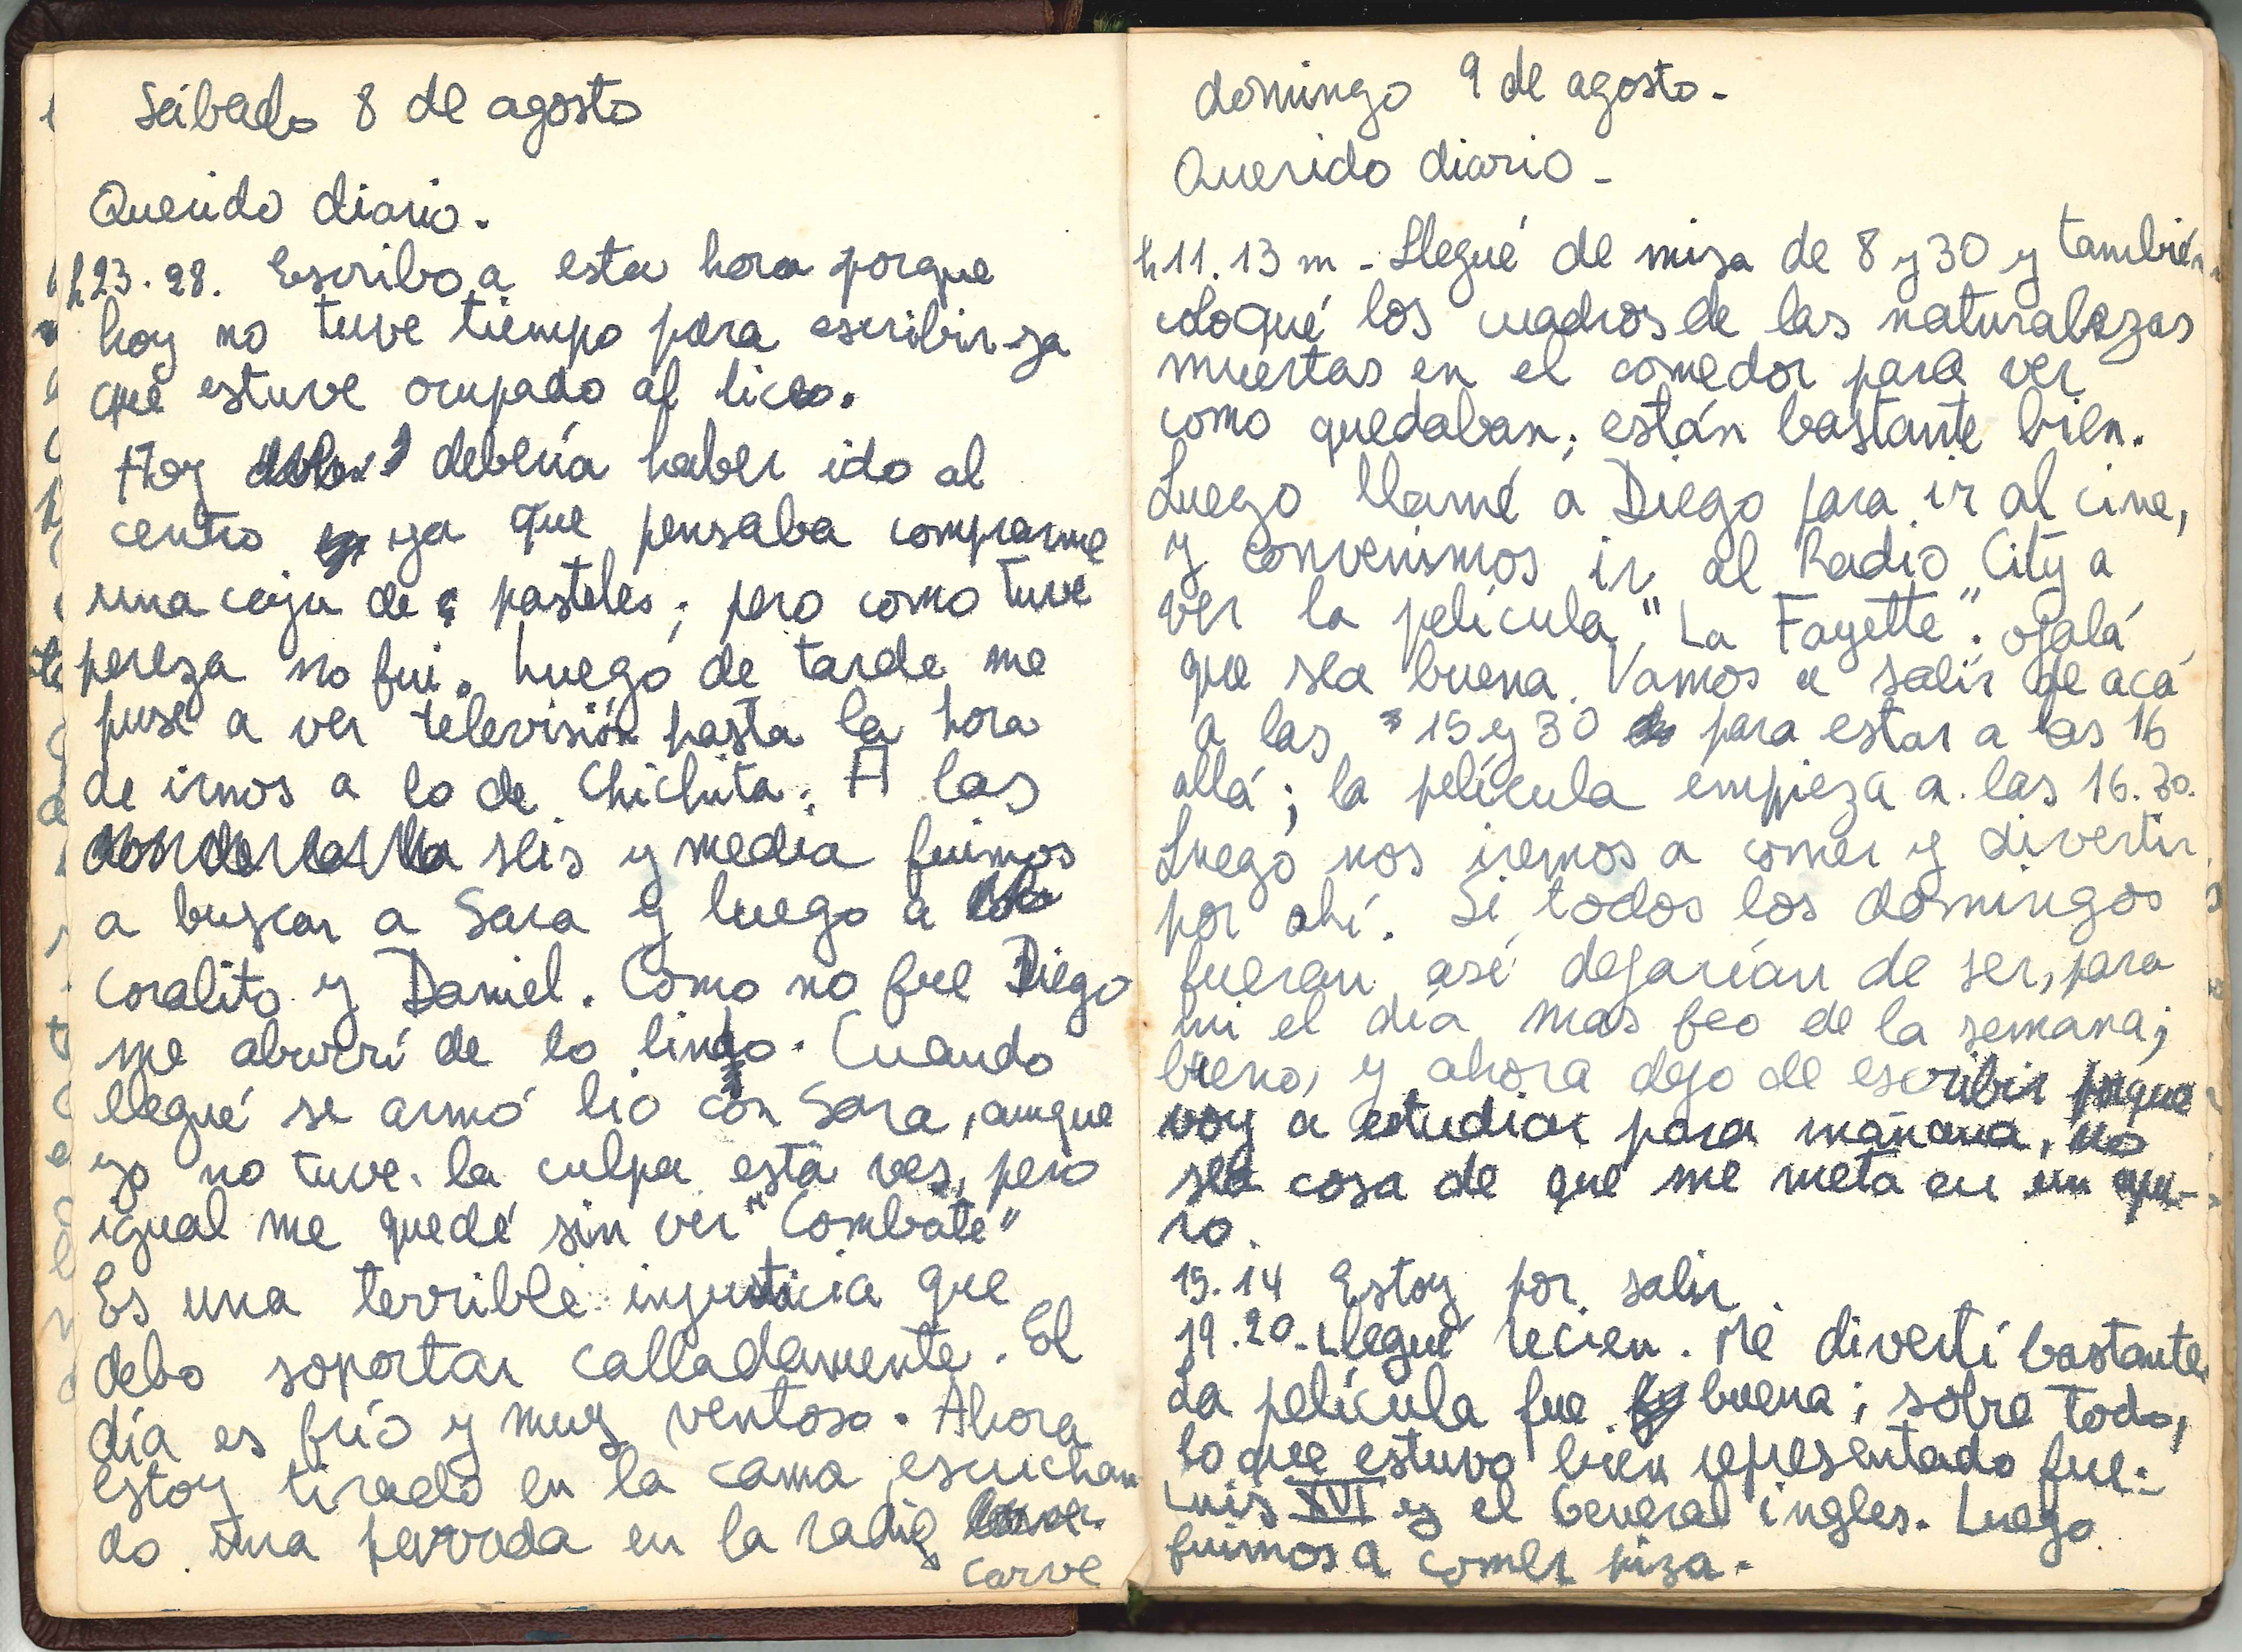 Sábado 8 de agosto
Querido diario.
h23.28. Escribo a esta hora porque
hoy no tuve tiempo para escribir ya
que estuve ocupado al liceo.
Hoy debería haber ido al
centro ya que pensaba comprarme
una caja de pasteles; pero como tuve
pereza no fui. Luego de tarde me
puse a ver televisión hasta la hora
de irnos a lo de Chichita. A las
seis y media fuimos
a buscar a Sara y luego a
Coralito y Daniel. Como no fue Diego
me aburrí de lo lindo. Cuando
llegué se armó lio con Sara, aunque
yo no tuve la culpa esta ves, pero
igual me quedé sin ver "Combate"
Es una terrible injusticia que
debo soportar calladamente. El
día es frío y muy ventoso. Ahora
estoy tirado en la cama escuchan
do una pavada en la radio
Carve
domingo 9 de agosto.
Querido diario -
h11.13 m - Llegué de misa de 8 y 30 y también
coloqué los cuadros de las naturalezas
muertas en el comedor para ver
como quedaban; están bastante bien.
Luego llamé a Diego para ir al cine,
y convenimos ir al Radio City a
ver la película "La Fayette". ojalá
que sea buena. Vamos a salir de acá
a las 15 y 30 para estar a las 16
allá; la película empieza a las 16.30.
Luego nos iremos a comer y divertir
por ahí. Si todos los domingos
fueran así dejarían de ser, para
mi el día mas feo de la semana;
bueno, y ahora dejo de escribir porque
voy a estudiar para mañana, no
sea cosa de que me meta en un apu-
ro.
15.14 Estoy por salir
19.20. Llegué recien. Me divertí bastante
La película fue buena; sobre todo,
lo que estuvo bien representado fue:
Luis XVI y el General ingles. Luego
fuimos a comer piza.